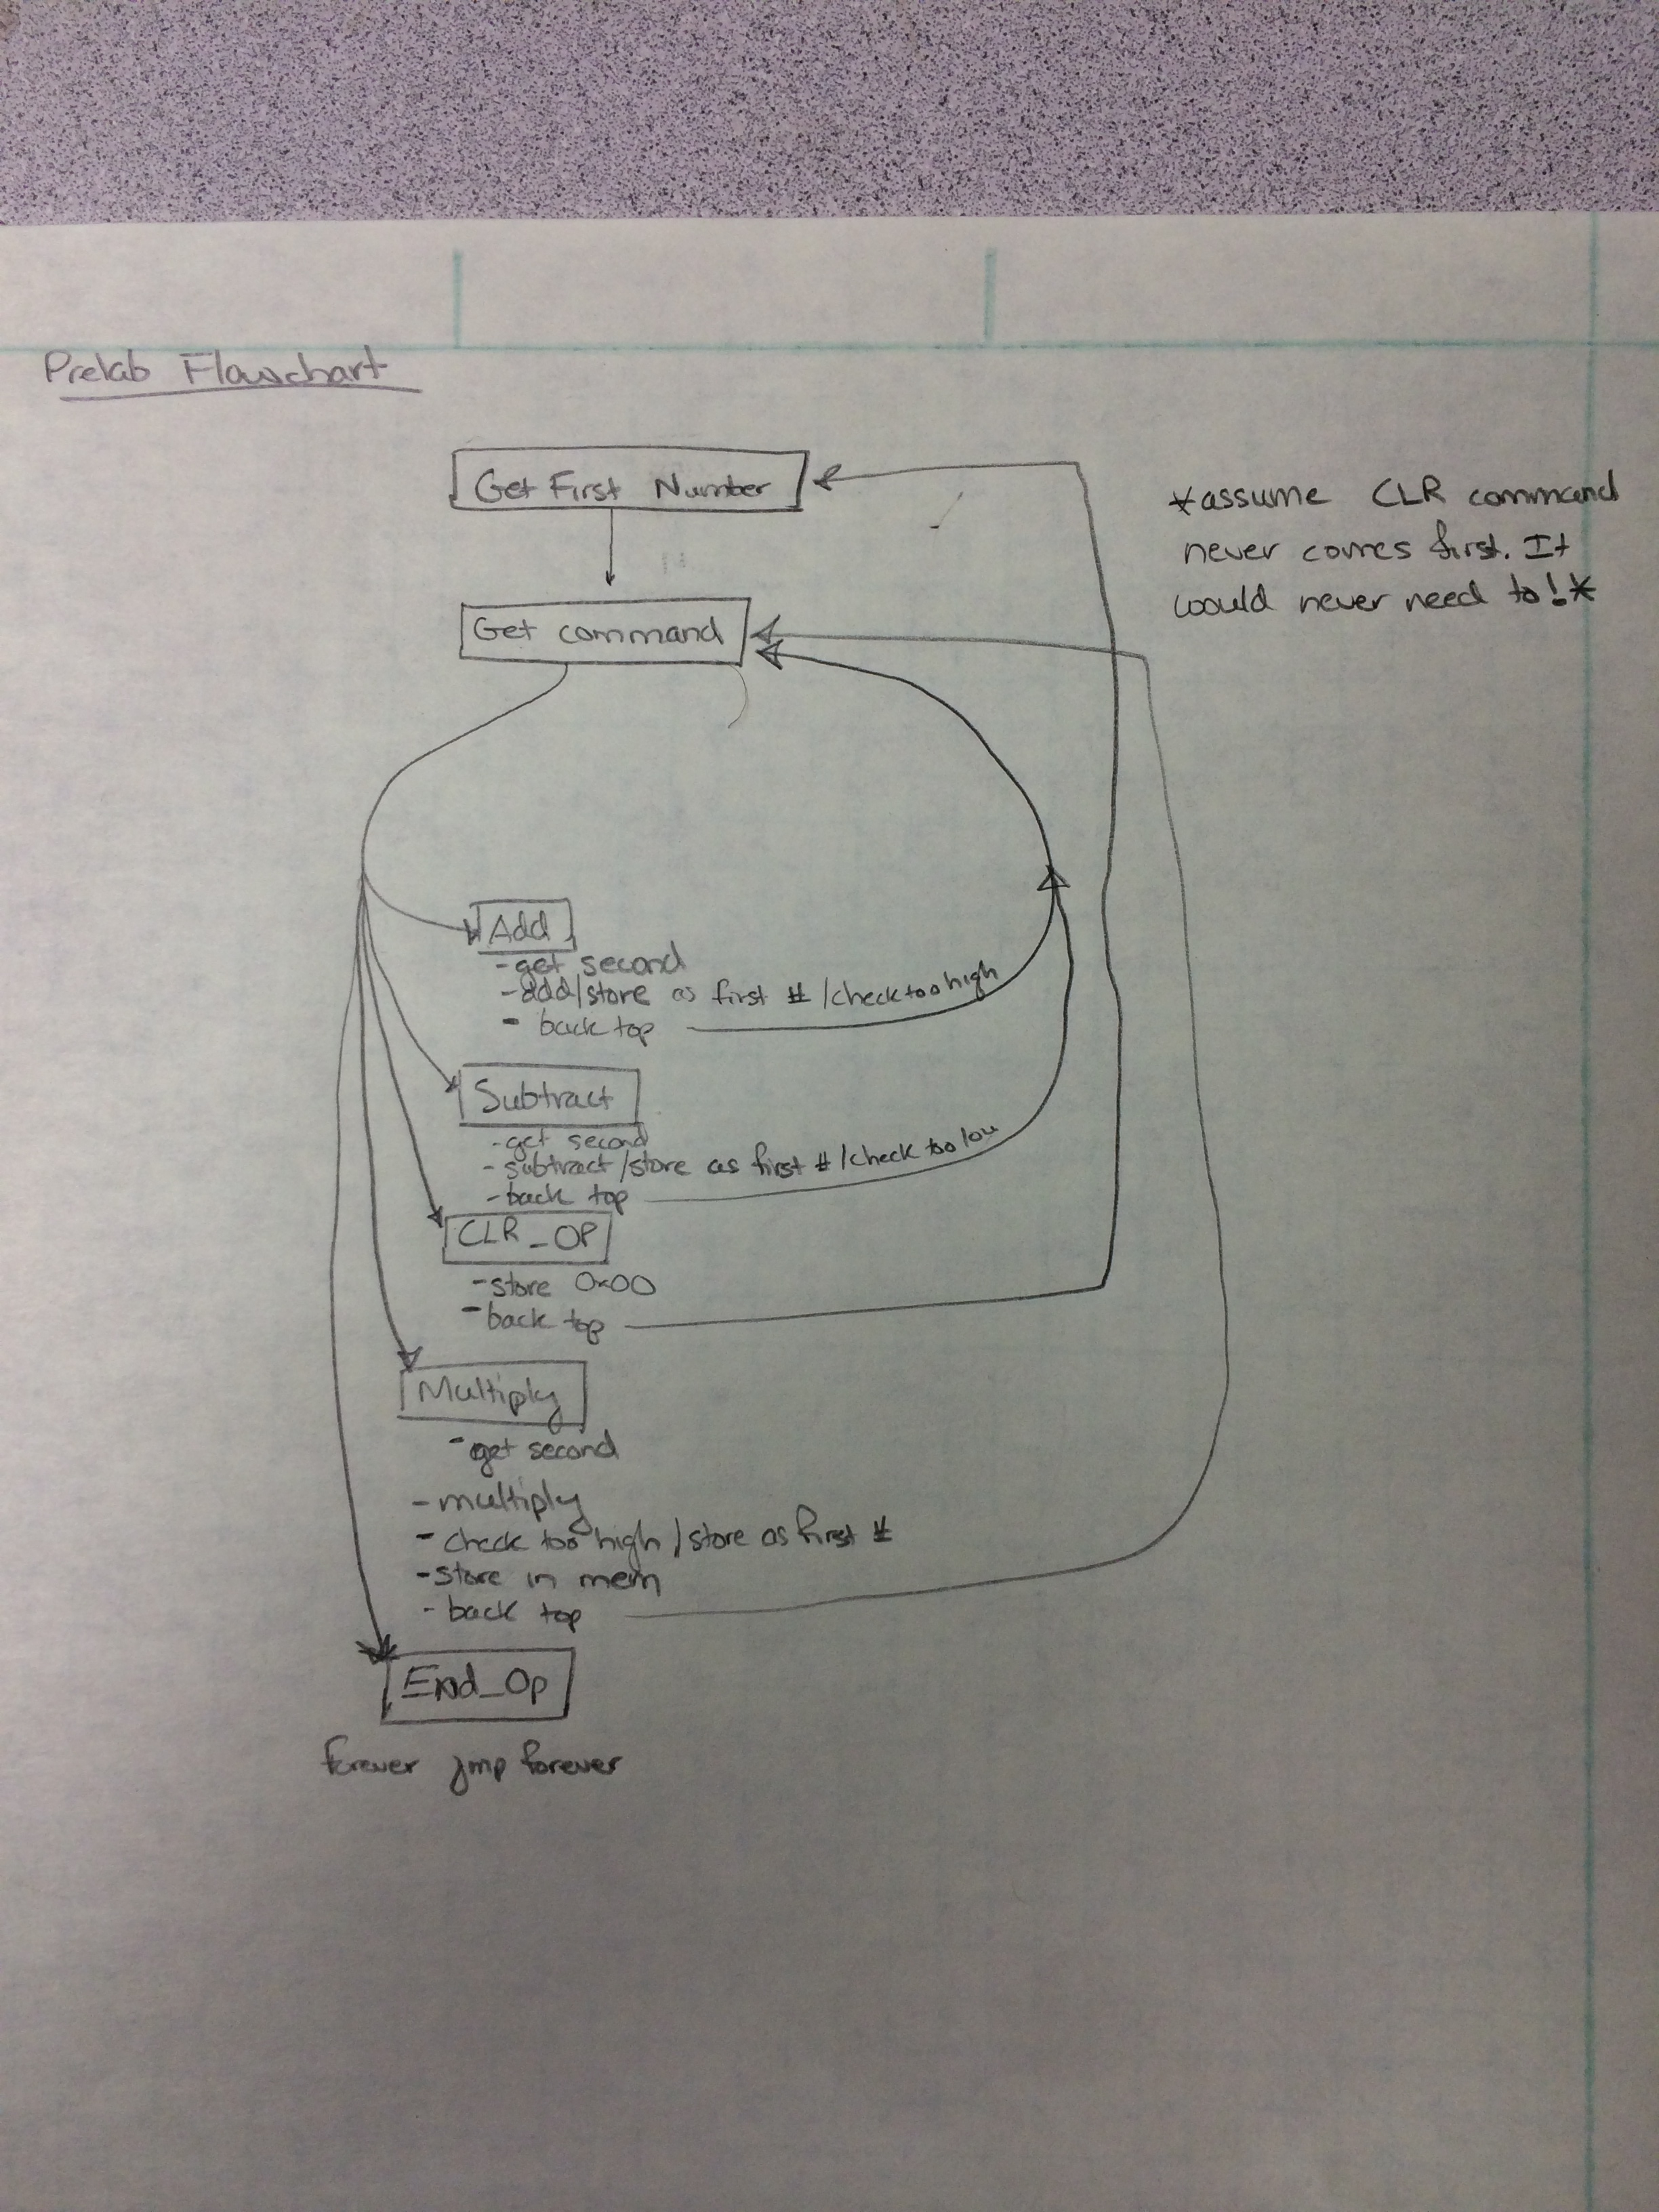 Prelab Flowchart
Get First Number
*assume CLR command
never comes first. It
would never need to!*
Get command
Add
-get second
-add/store as first #/check too high
- back top
Subtract
-get second
-subtract/store as first #/check too low
-back top
CLR_OP
-store 0x00
-back top
Multiply
-get second
-multiply
-check too high/store as first #
-store in mem
-back top
End_Op
forever jmp forever